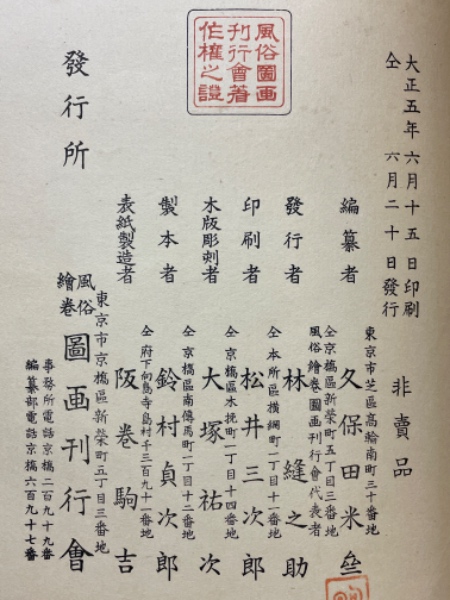 大正五年六月十五日印刷
仝 六月二十日發行
非賣品
編纂者
東京市芝區高輪南町三十番地
久保田米僊
仝京橋區新榮町五丁目三番地
風俗繪巻圖画刊行會代表者
發行者
林縫之助
仝本所區横網町一丁目十一番地
印刷者
松井三次郎
仝京橋區木挽町一丁目十四番地
木版彫刻者
大塚祐次
仝京橋區南傳馬町一丁目十二番地
製本者
鈴村貞次郎
仝府下向島寺島村千三百九十一番地
表紙製造者
阪巻駒吉
風俗圖画
刊行會著
作權之證
發行所
東京市京橋區新榮町五丁目三番地
風俗繪巻圖画刊行會
事務所電話京橋二百九十九番
編纂部電話京橋六百九十七番